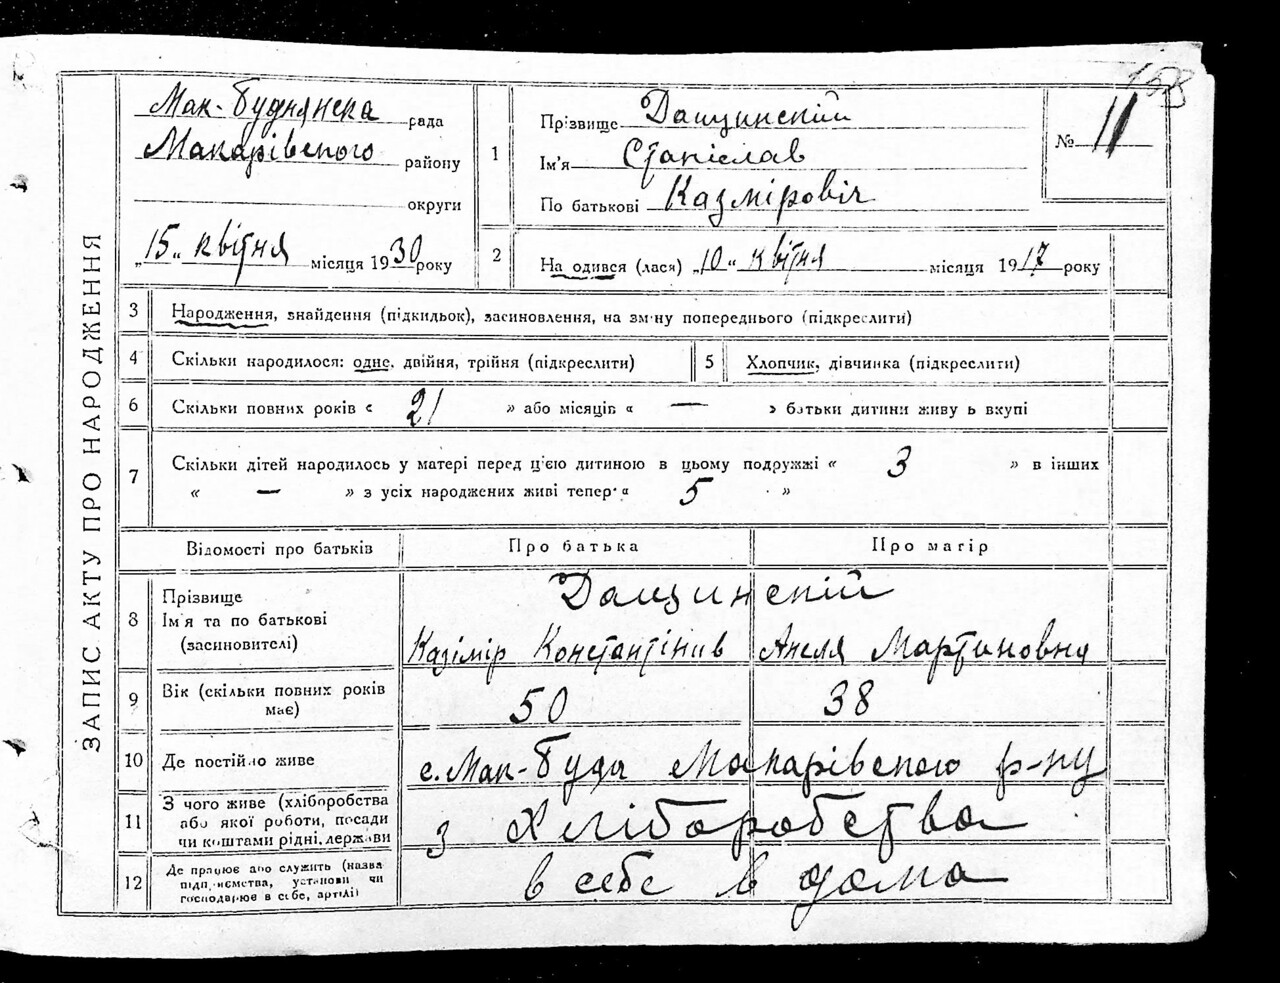 ЗАПИС АКТУ ПРО НАРОДЖЕННЯ
158
Мак-Буднянска рада
Макарівського району
округи
„15" квітня місяця 1930 року
1
Прізвище Дащинскій
Ім'я Станіслав
По батькові Казміровіч
№ 11
2
На одився (лася) „10" квітня місяця 1917 року
3 Народження, знайдення (підкидьок), засиновлення, на зм·ну попереднього (підкреслити)
4 Скільки народилося: одне, двійня, трійня (підкреслити)
5 Хлопчик, дівчинка (підкреслити)
6 Скільки повних років « 21 » або місяців « — » батьки дитини живу ь вкупі
7 Скільки дітей народилось у матері перед ц'єю дитиною в цьому подружжі « 3 » в інших
« — » з усіх народжених живі тепер « 5 »
Відомості про батьків Про батька Про матір
8 Прізвище
Ім'я та по батькові
(засиновителі)
Дащинскій
Казімір Константінив Анеля Мартиновна
9 Вік (скільки повних років
має)
50 38
10 Де постійно живе с. Мак-Буда Макарівского р-ну
11 З чого живе (хліборобства
або якої роботи, посади
чи коштами рідні, держави
з Хліборобства
12 Де працює або служить (назва
підп.иємства, установи чи
господарює в себе, артілі)
в себе в дома